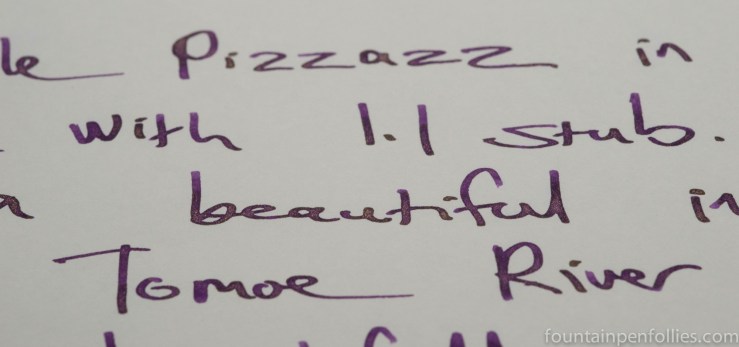 le Pizzazz in
with 1.1 stub.
a beautiful in
Tomoe River
fountainpenfollies.com